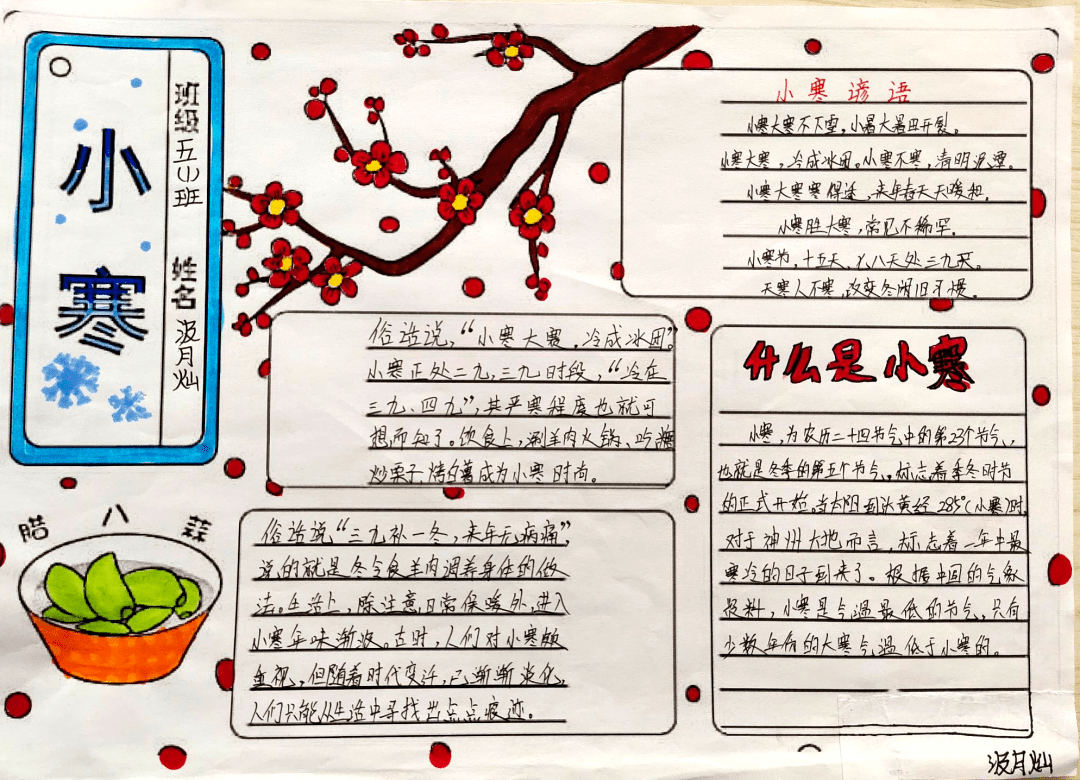 小寒
班级五(1)班
姓名 汲月灿
小寒谚语
小寒大寒不下雪,小暑大暑田开裂。
小寒大寒,冷成冰团。小寒不寒,清明泥潭。
小寒大寒寒得透,来年春天天暖和。
小寒胜大寒,常见不稀罕。
小寒为,十五天,七八天处三九天。
天寒人不寒,改变冬闲旧习惯。
俗话说,“小寒大寒,冷成冰团”
小寒正处二九,三九时段,“冷在
三九、四九”,其严寒程度也就可
想而知了。饮食上,涮羊肉火锅、吃糖
炒栗子、烤白薯成为小寒时尚。
什么是小寒
小寒,为农历二十四节气中的第23个节气,
也就是冬季的第五个节气,标志着季冬时节
的正式开始。当太阳到达黄经285°(小寒)时,
对于神州大地而言,标志着一年中最
寒冷的日子到来了。根据中国的气象
资料,小寒是气温最低的节气,只有
少数年份的大寒气温低于小寒的。
腊八蒜
俗话说“三九补一冬,来年无病痛”,
说的就是冬令食羊肉调养身体的做
法。生活上,除注意日常保暖外,进入
小寒年味渐浓。古时,人们对小寒颇
重视,但随着时代变迁,已渐渐淡化,
人们只能从生活中寻找出点点痕迹。
汲月灿